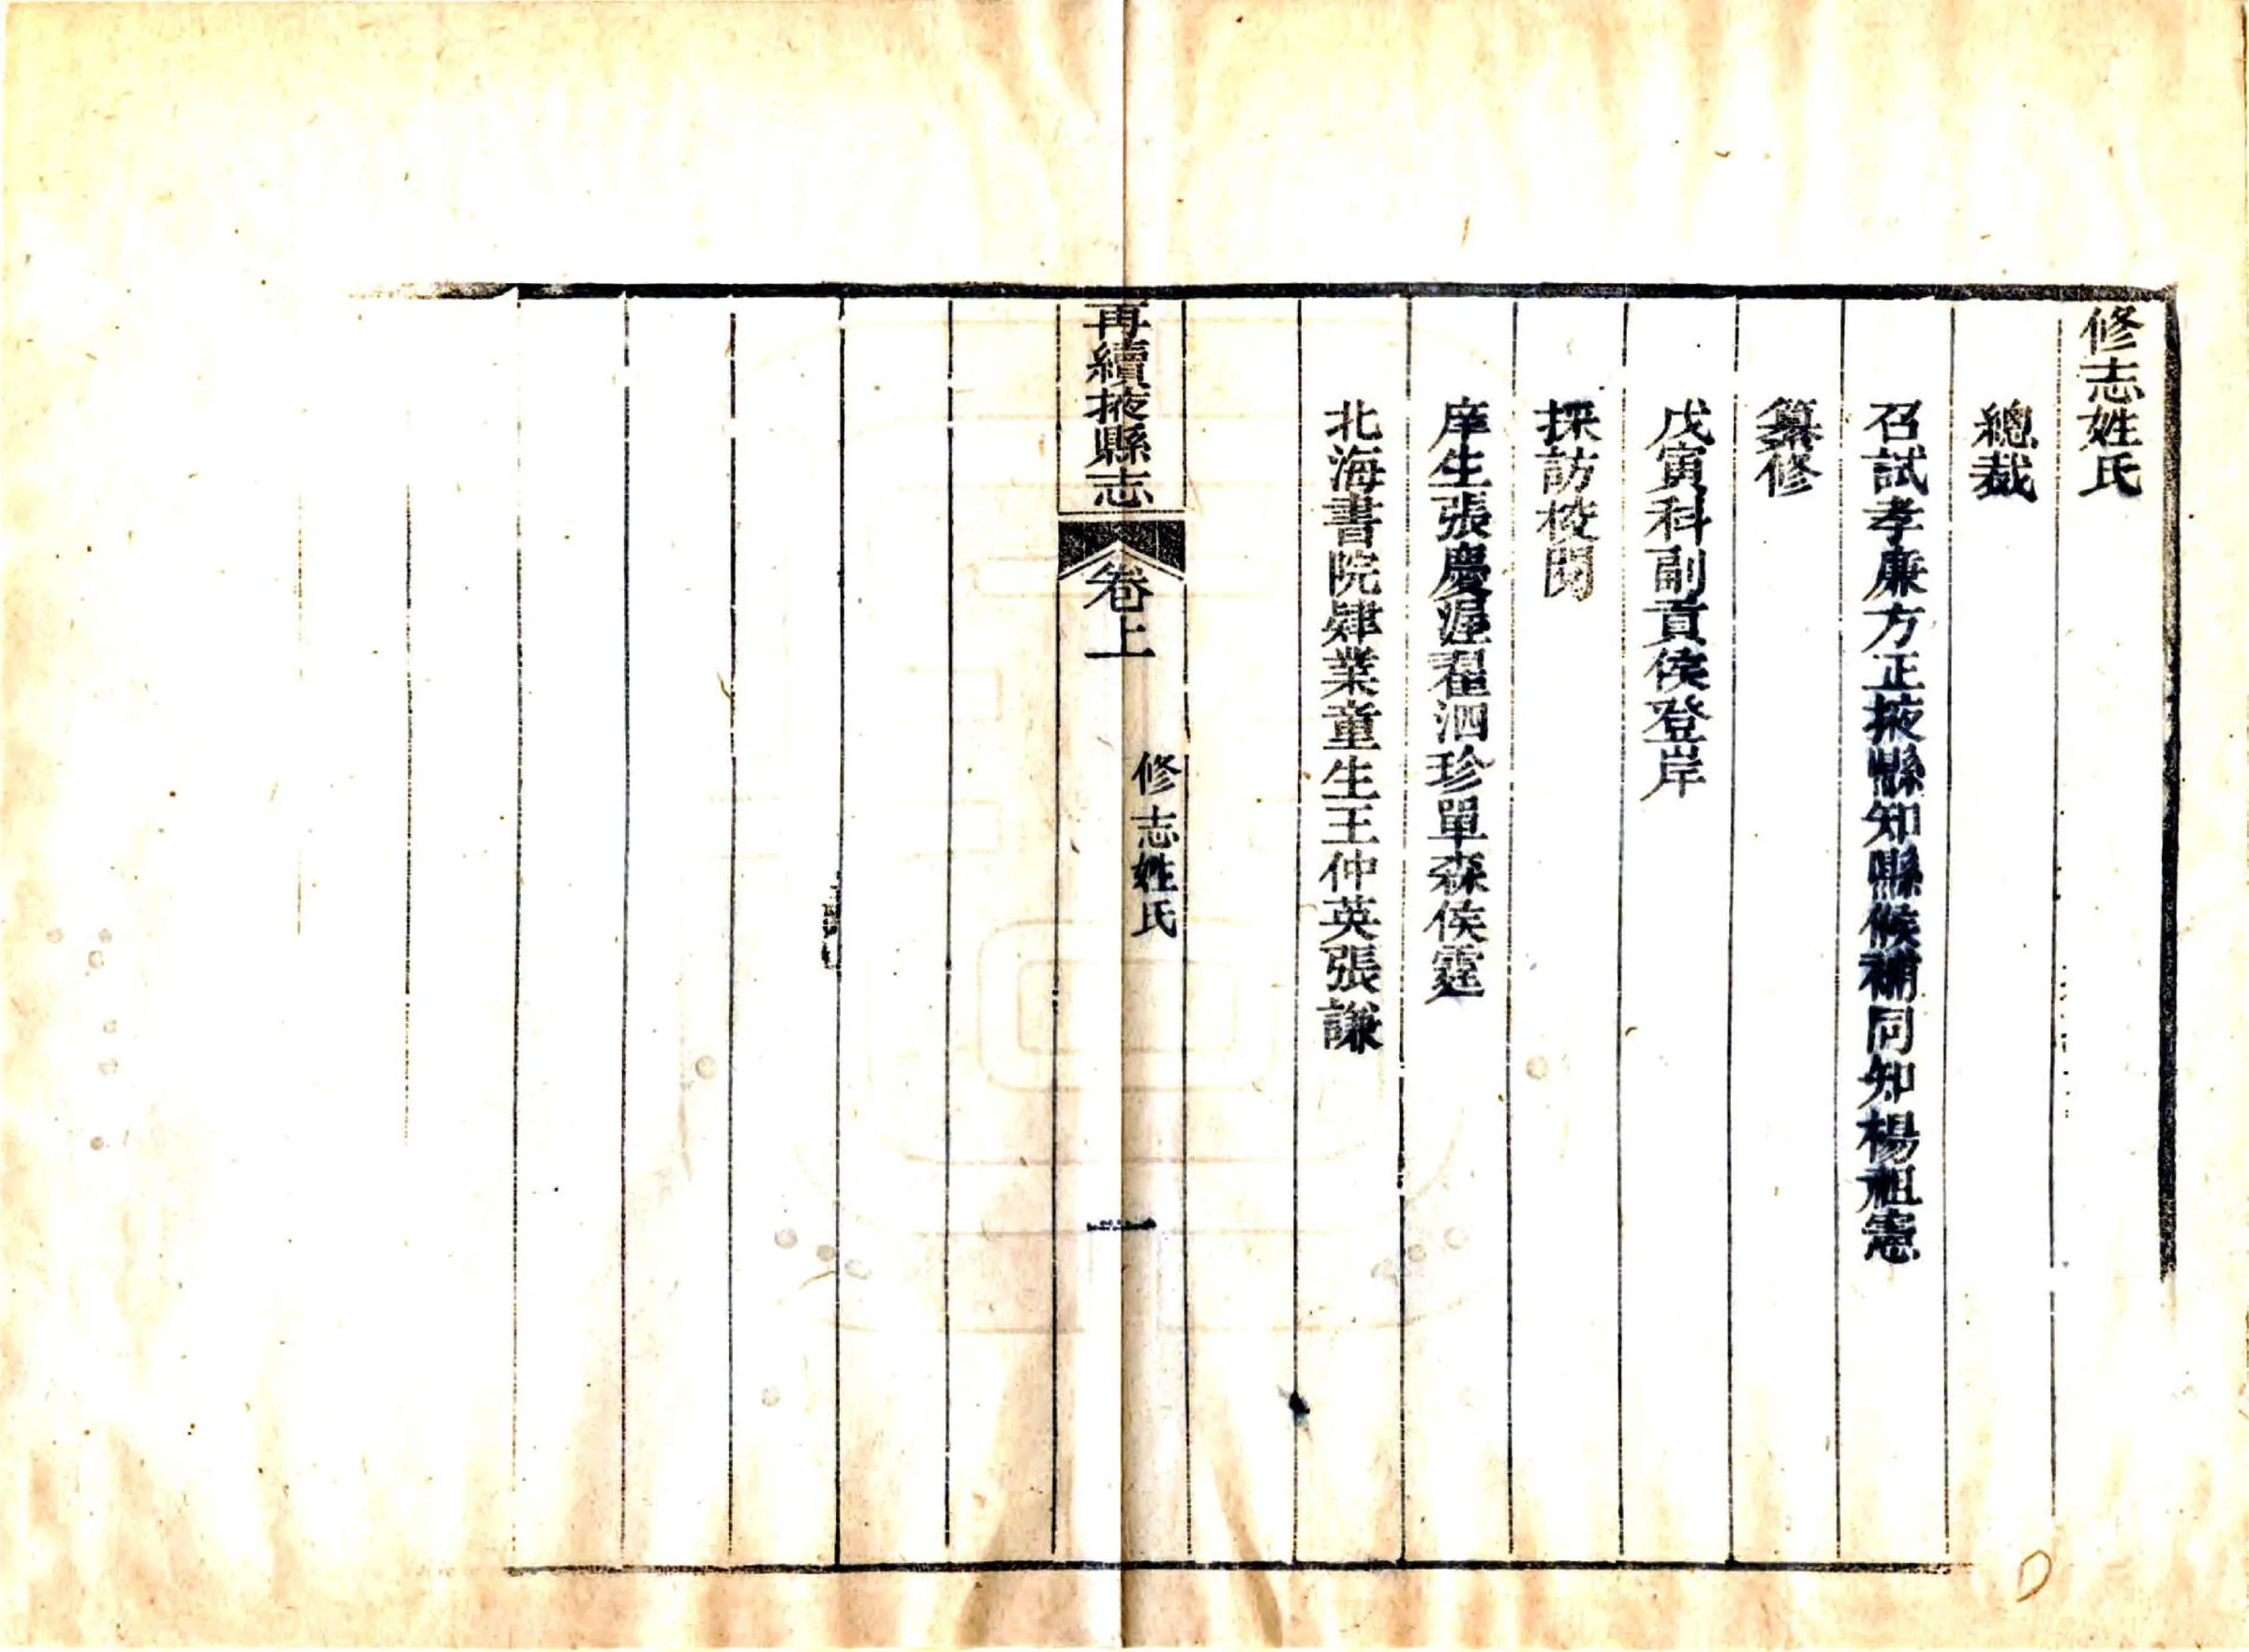 修志姓氏
總裁
召試孝廉方正掖縣知縣候補同知楊祖憲
纂修
戊寅科副貢侯登岸
採訪校閱
庠生張慶渥翟泗珍單森侯霆
北海書院肄業童生王仲英張謙
再續掖縣志
卷上
修志姓氏
一